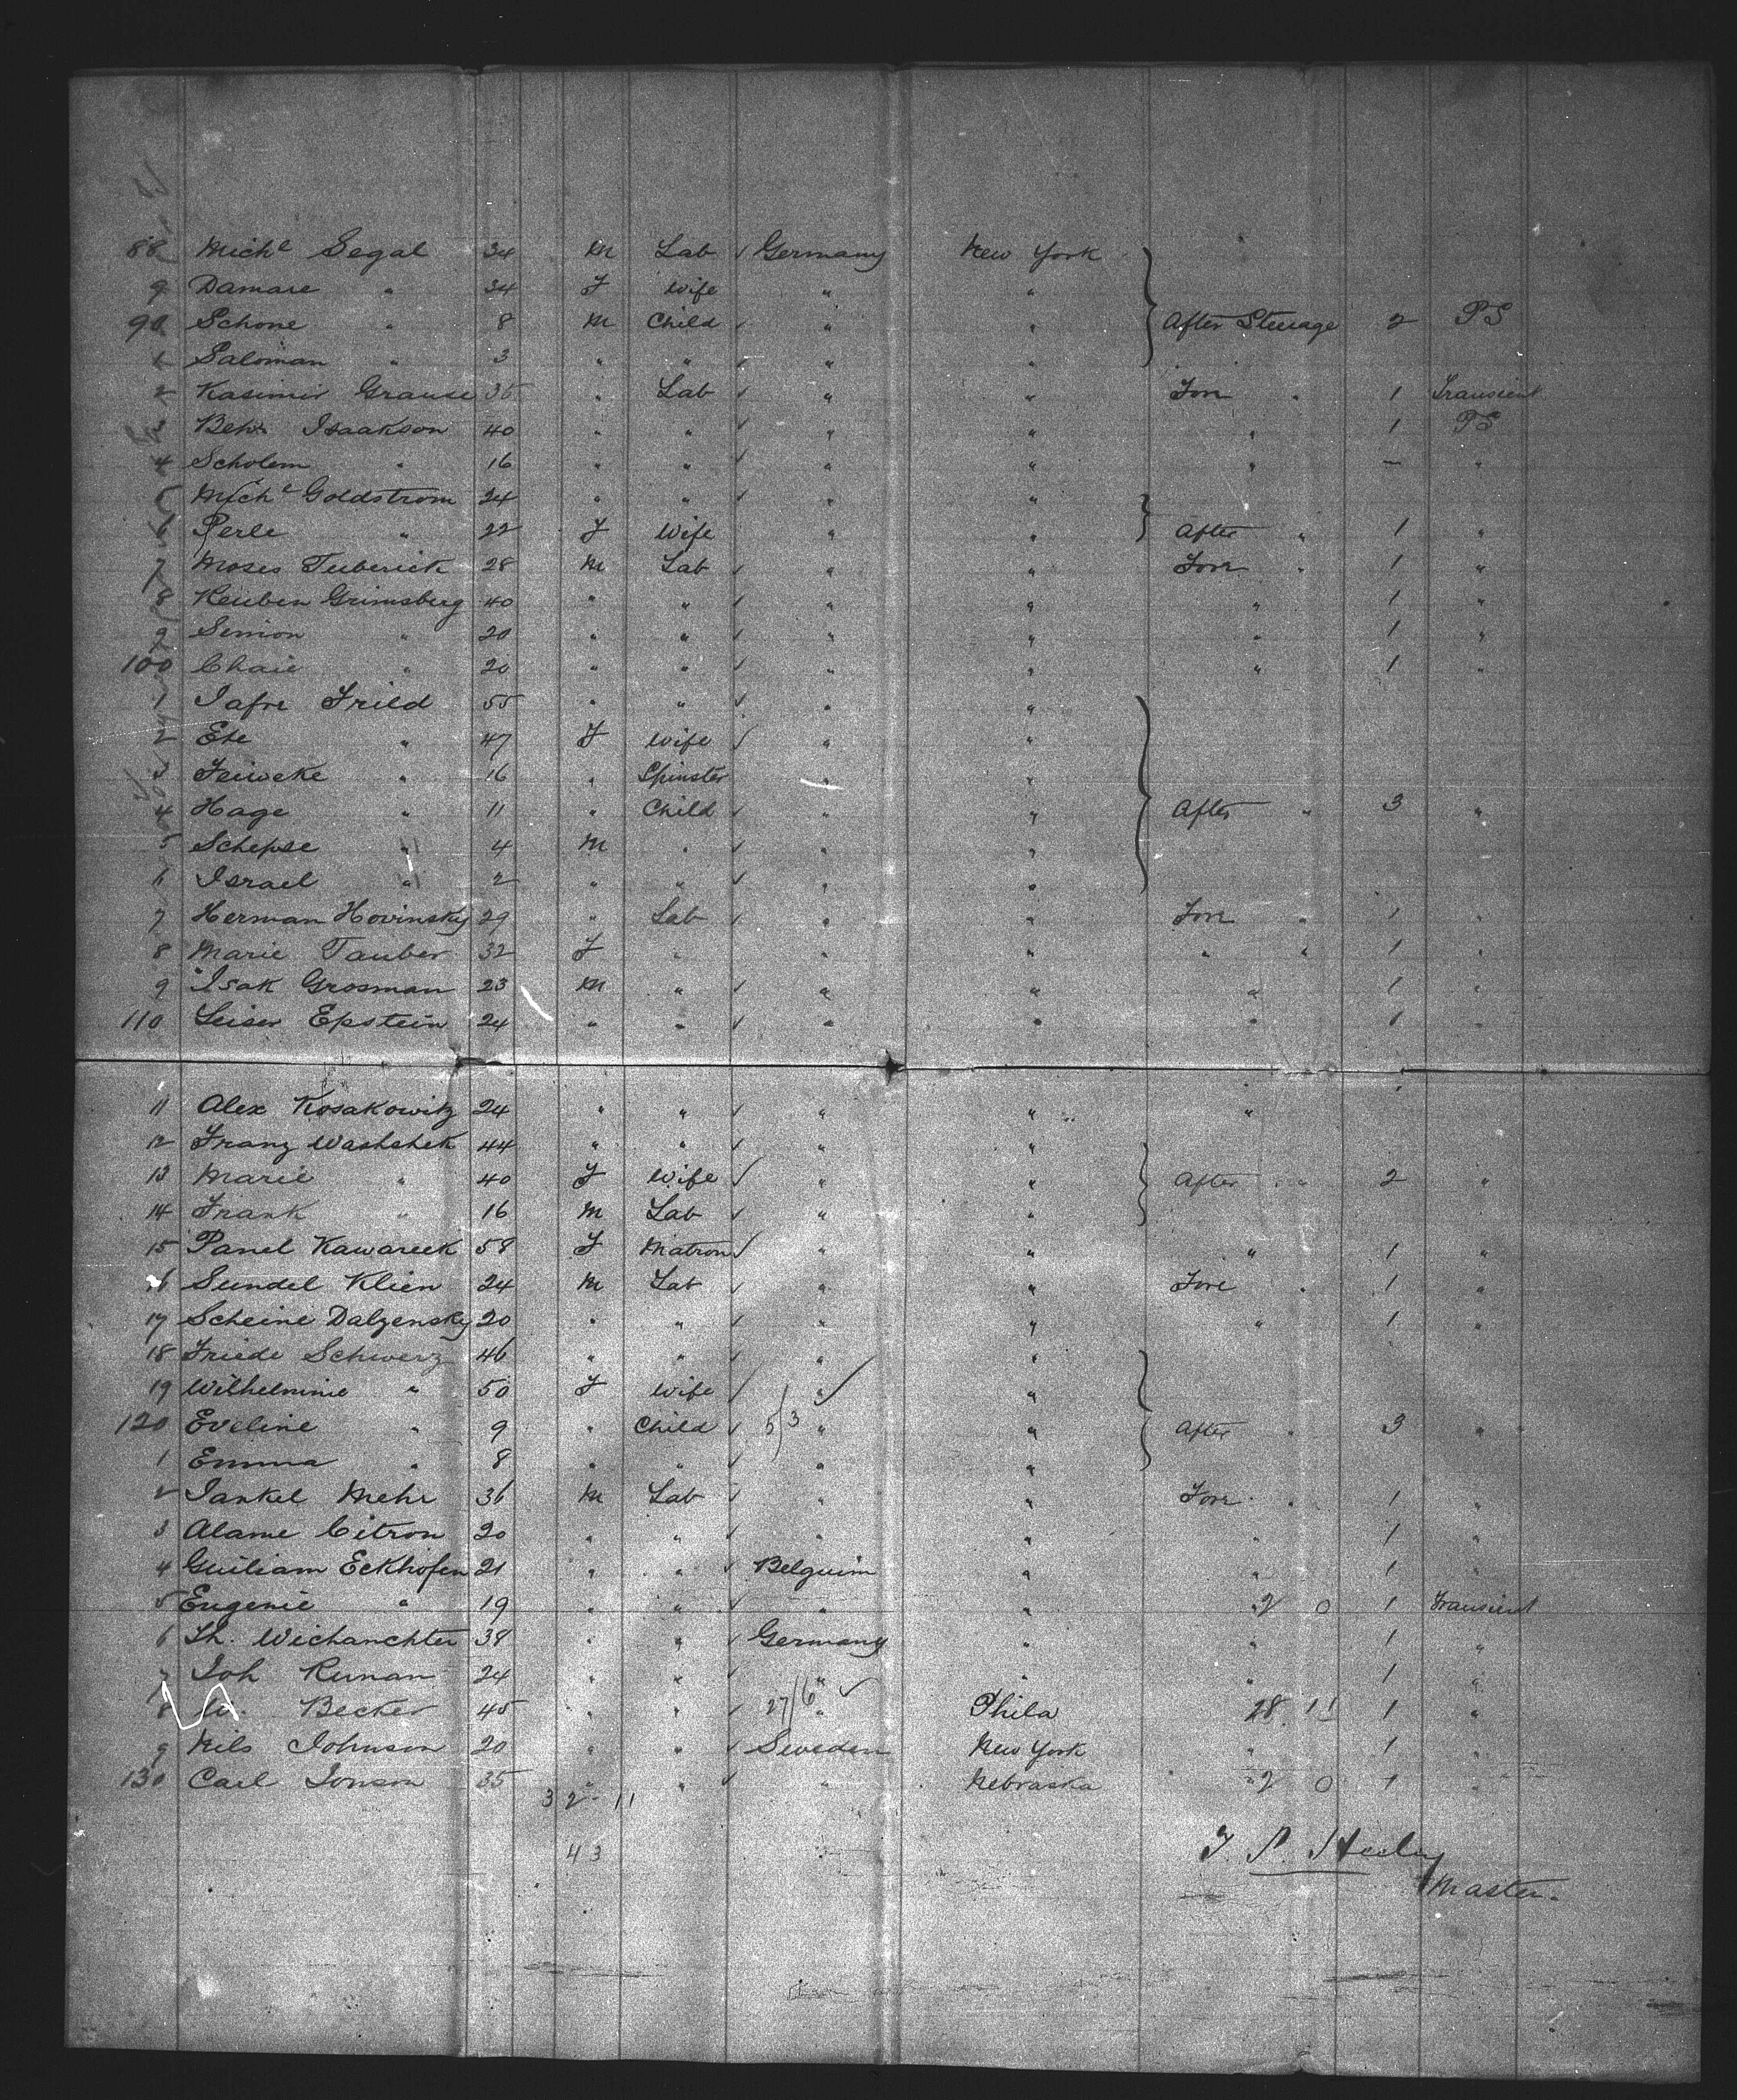 88 Michl Segal 34 M Lab Germany New York
9 Damare " 34 F Wife " "
90 Schone " 8 M Child " " After Steerage 2 PS
1 Saloman " 3 " " " "
2 Kasimir Grause 35 " Lab " " Fore " 1 Transient
3 Behr Isaakson 40 " " " " " 1 PS
4 Scholem " 16 " " " " " — "
5 Michl Goldstrom 24 " " " "
6 Perle " 22 F Wife " " After " 1 "
7 Moses Tuberick 28 M Lab " " Fore " 1 "
8 Reuben Grimsberg 40 " " " " " 1 "
9 Simon " 20 " " " " " 1 "
100 Chaie " 20 " " " " " 1 "
1 Jafre Frild 55 " " " "
2 Ete " 47 F Wife " "
3 Feiweke " 16 " Spinster " "
4 Hage " 11 " Child " " After " 3 "
5 Schepse " 4 M " " "
6 Israel " 2 " " " "
7 Herman Hovinsky 29 " Lab " " Fore " 1 "
8 Marie Tauber 32 F " " " " " 1 "
9 Isak Grosman 23 M " " " " 1 "
110 Leiser Epstein 24 " " " " " 1 "
11 Alex Kosakowitz 24 " " " " "
12 Franz Washchek 44 " " " "
13 Marie " 40 F Wife " " After " 2 "
14 Frank " 16 M Lab " "
15 Panel Kawareek 58 F Matron " " " 1 "
16 Sundel Klien 24 M Lab " " Fore " 1 "
17 Scheine Dalzensky 20 " " " " " 1 "
18 Friede Schwerz 46 " " " "
19 Wilhelmine " 50 F Wife " "
120 Eveline " 9 " Child 5/3 " " After " 3 "
1 Emma " 8 " " " "
2 Jankel Mehr 36 M Lab " " Fore " 1 "
3 Alame Citron 20 " " " " " 1 "
4 Guiliam Eckhofen 21 " " Belguim " " 1 "
5 Eugenie " 19 " " " " 2 0 1 Transient
6 Th. Wichanchter 38 " " Germany " " 1 "
7 Joh Runan 24 " " " " " 1 "
8 Becker 45 " " 27/6 " Phila 28 11 1 "
9 Nils Johnson 20 " " Sweden New York " 1 "
130 Carl Jonson 35 " " " Nebraska " 2 0 1 "
32 - 11
43
Master.